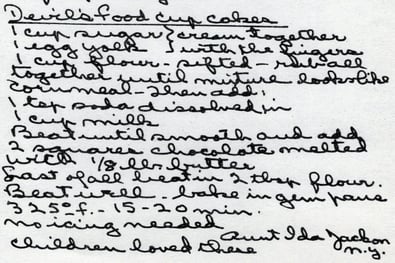 Devil's Food Cup Cakes
1 cup sugar } cream together
1 egg yolk } with the fingers
1 cup flour - sifted - rub all
together until mixture looks like
cornmeal - then add:
1 tsp soda dissolved in
1 cup milk
Beat until smooth and add
2 squares chocolate melted
with 1/8 lb. butter
Last of all beat in 2 tbsp flour.
Beat well - bake in gem pans
325° f. - 15-20 min.
no icing needed
children loved these
Aunt Ida Jackson
N.Y.